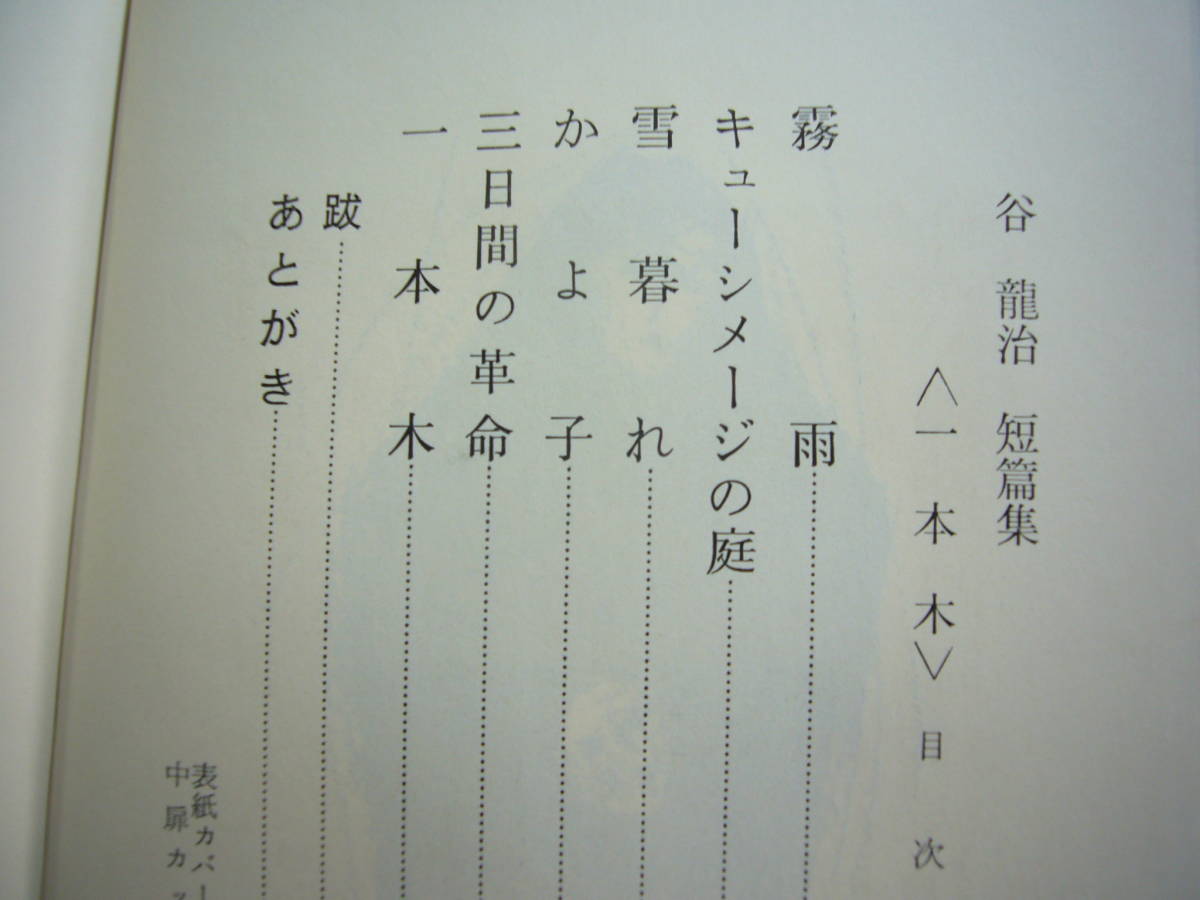 谷 龍治 短篇集
〈一本木〉 目次
霧雨
キューシメージの庭
雪暮れ
かよ子
三日間の革命
一本木
跋
あとがき
表紙カバー
中扉カッ